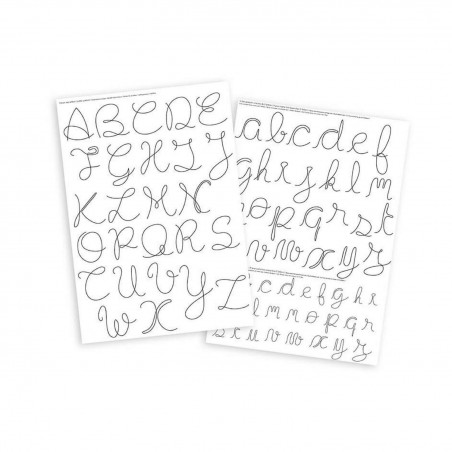 A B C D E
F G H I J
K L M N
O P Q R S
T U V Y Z
W X
a b c d e f
g h i j k l m
n o p q r s t
u v w x y z
b c d e f g h i
k l m n o p q r
s t u v w x y z